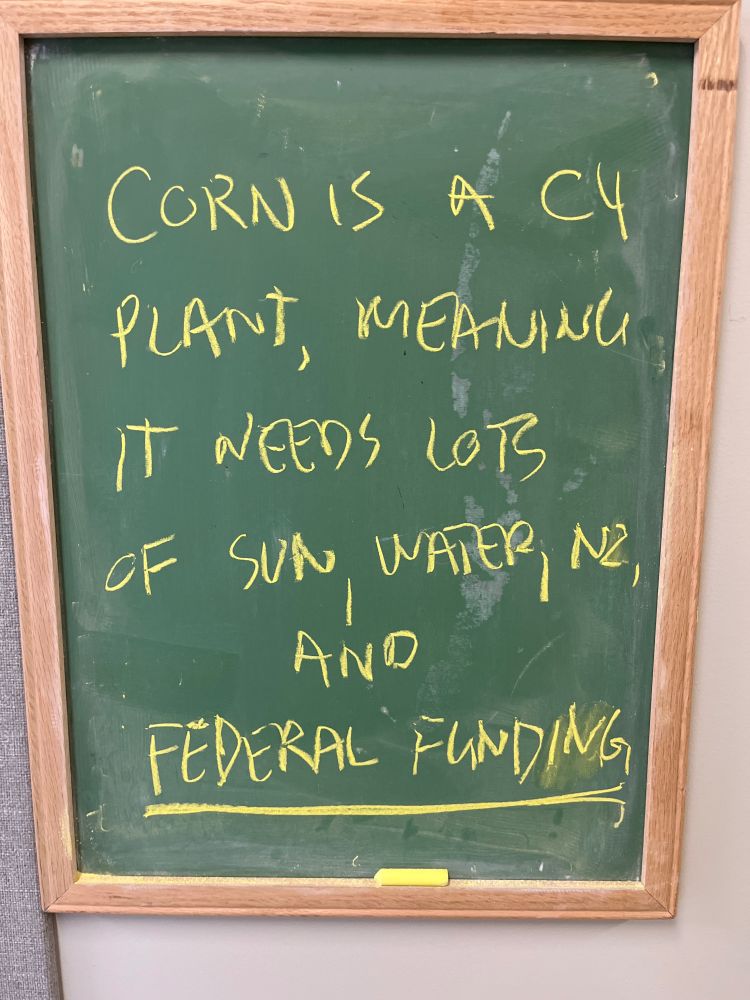 CORN IS A C4
PLANT, MEANING
IT NEEDS LOTS
OF SUN, WATER, N2,
AND
FEDERAL FUNDING